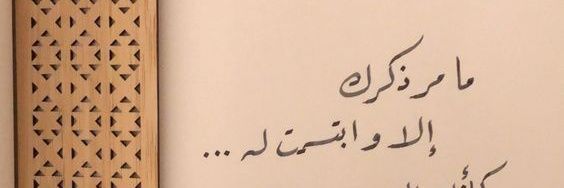 ما مر ذكرك
إلا و ابتسمت له ...